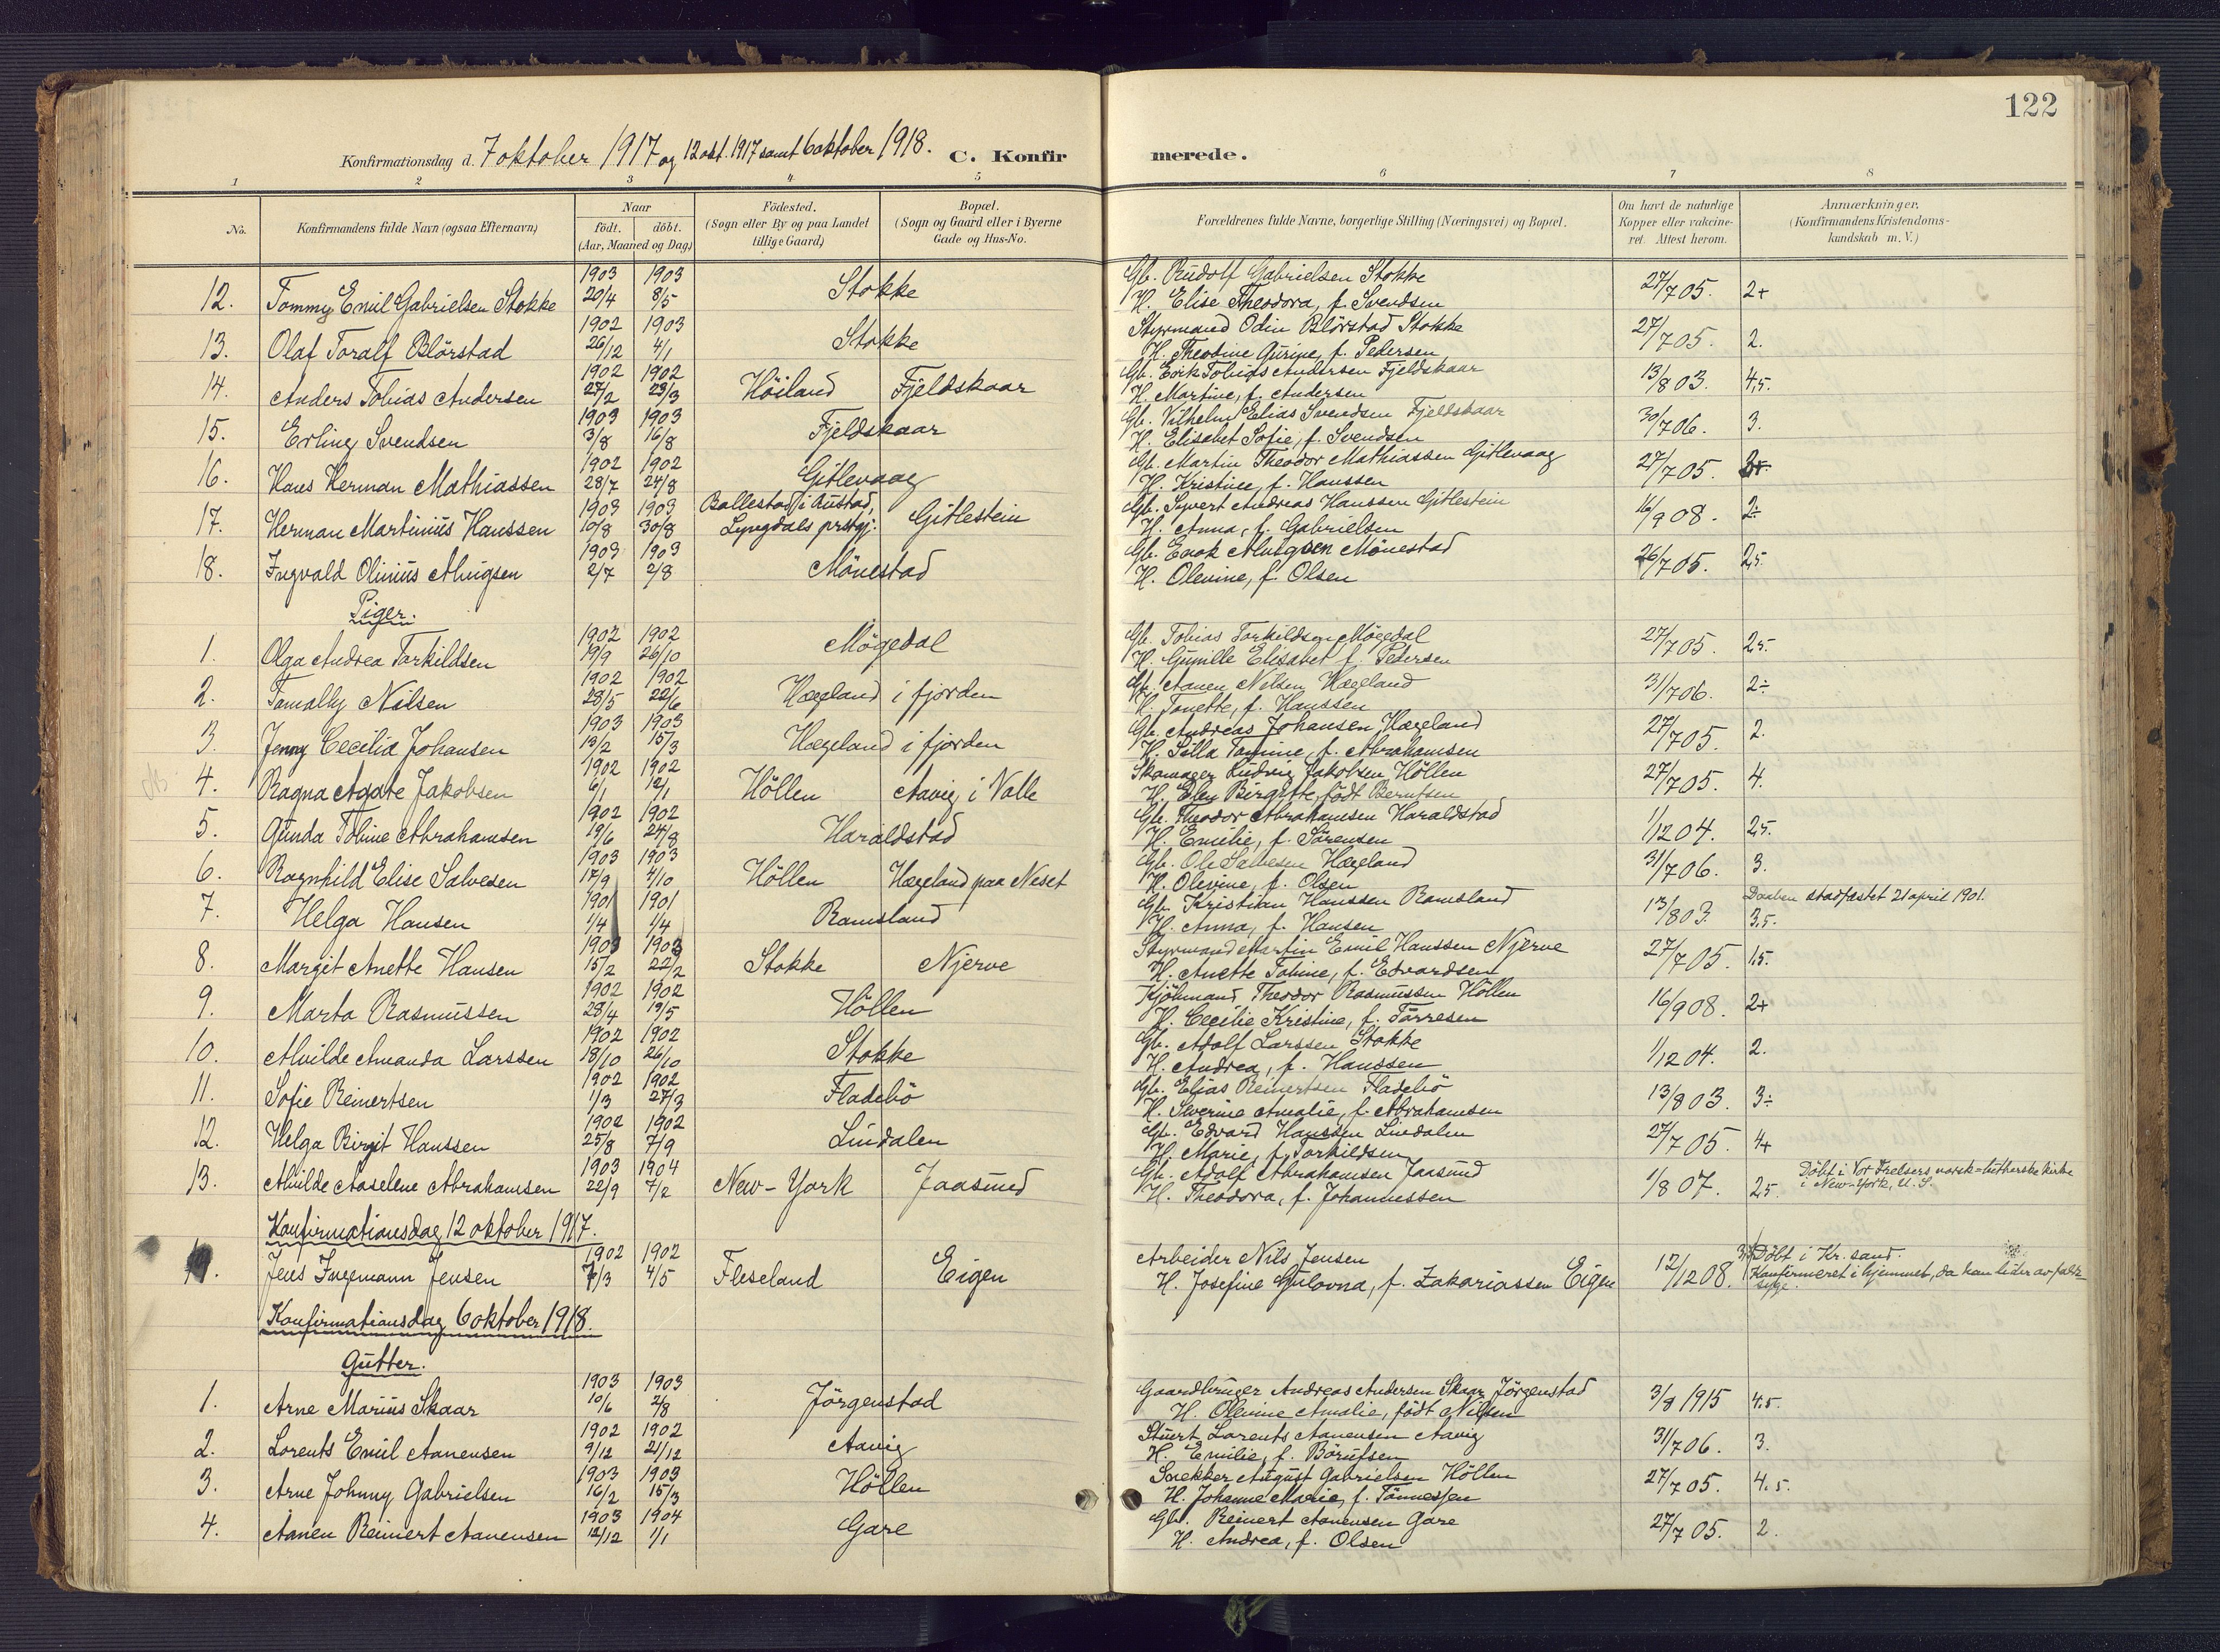 122
Konfirmationsdag d. 7 oktober 1917 og 12 okt. 1917 samt 6 oktober 1918. C. Konfirmerede.
1 2 3 4 5 6 7 8
No. Konfirmandens fulde Navn (ogsaa Efternavn) Naar födt. döbt. (Aar, Maaned og Dag) Födested. (Sogn eller By og paa Landet tillige Gaard) Bopæl. (Sogn og Gaard eller i Byerne Gade og Hus-No. Forældrenes fulde Navne, borgerlige Stilling (Næringsvei) og Bopæl. Om havt de naturlige Kopper eller vakcineret. Attest herom. Anmærkninger. (Konfirmandens Kristendomskundskab m. V.)
12. Tommy Emil Gabrielsen Stokke 1903 20/4 1903 8/5 Stokke Gb. Rudolf Gabrielsen Stokke 27/7 05. 2+
H. Elise Theodora, f. Svendsen
13. Olaf Toralf Blörstad 1902 26/12 1903 4/1 Stokke Styrmand Odin Blörstad Stokke 27/7 05. 2.
H. Theodine Gurine, f. Pedersen
14. Anders Tobias Andersen 1902 27/2 1902 23/3 Höiland Fjeldskaar Gb. Erik Tobias Andersen Fjeldskaar 13/8 03. 4,5.
H. Martine, f. Andersen
15. Erling Svendsen 1903 3/8 1903 16/8 Fjeldskaar Gb. Vilhelm Elias Svendsen Fjeldskaar 30/7 06. 3.
H. Elisabet Sofie, f. Svendsen
16. Hans Herman Mathiassen 1902 28/7 1902 24/8 Gitlevaag Gb. Martin Theodor Mathiassen Gitlevaag 27/7 05.
H. Kristine, f. Hanssen
17. Herman Martinius Hanssen 1903 10/8 1903 30/8 Ballestad i Austad, Lyngdals prstgj. Gitlestein Gb. Syvert Andreas Hanssen Gitlestein 16/9 08. 2÷
H. Anna, f. Gabrielsen
18. Ingvald Olinius Alvigsen 1903 2/7 1903 2/8 Mönestad Gb. Enok Alvigsen Mönestad 26/7 05. 2,5.
H. Olevine, f. Olsen
Piger.
1. Olga Andrea Torkildsen 1902 19/9 1902 26/10 Mögedal Gb. Tobias Torkildsen Mögedal 27/7 05. 2,5.
H. Gunille Elisabet f. Pedersen
2. Tomally Nilsen 1902 28/5 1902 22/6 Hægeland i fjorden Gb. Aanen Nilsen Hægeland 31/7 06. 2÷
H. Tonette, f. Hanssen
3. Jenny Cecilia Johansen 1903 13/2 1903 15/3 Hægeland i fjorden Gb. Andreas Johansen Hægeland 27/7 05. 2.
H. Silla Tomine, f. Abrahamsen
4. Ragna Agate Jakobsen 1902 6/1 1902 12/1 Höllen Aavig i Valle Skomager Ludvig Jakobsen Höllen 27/7 05. 4.
H. Elen Birgitte, födt Berntsen
5. Gunda Tobine Abrahamsen 1902 19/6 1902 24/8 Haraldstad Gb. Theodor Abrahamsen Haraldstad 1/12 04. 2,5.
H. Emilie, f. Sörensen
6. Ragnhild Elise Salvesen 1903 17/9 1903 4/10 Höllen Hægeland paa Neset Gb. Ole Salvesen Hægeland 31/7 06. 3.
H. Olevine, f. Olsen
7. Helga Hansen 1901 1/4 1901 1/4 Ramsland Gb. Kristian Hanssen Ramsland 13/8 03. Daaben stadfæstet 21 april 1901. 3,5.
H. Anna, f. Hansen
8. Margit Anette Hansen 1903 15/2 1903 22/2 Stokke Njerve Styrmand Martin Emil Hanssen Njerve 27/7 05. 1,5.
H. Anette Tobine, f. Edvardsen
9. Marta Rasmussen 1902 28/4 1902 19/5 Höllen Kjöbmand Theodor Rasmussen Höllen 16/9 08. 2+
H. Cecilie Kristine, f. Törresen
10. Alvilde Amanda Larssen 1902 18/10 1902 26/10 Stokke Gb. Adolf Larssen Stokke 1/12 04. 2.
H. Andrea, f. Hanssen
11. Sofie Reinertsen 1902 1/3 1902 27/3 Fladebö Gb. Elias Reinertsen Fladebö 13/8 03. 3÷
H. Severine Amalie, f. Abrahamsen
12. Helga Birgit Hanssen 1902 25/8 1902 7/9 Lindalen Gb. Edvard Hanssen Lindalen 27/7 05. 4+
H. Marie, f. Torkildsen
13. Alvilde Aaselene Abrahamsen 1903 22/9 1904 7/2 New-York Jaasund Gb. Adolf Abrahamsen Jaasund 1/8 07. 2,5. Döbt i Vor Frelsers norsk-lutherske kirke i New-York, U. S.
H. Theodora, f. Johannessen
Konfirmationsdag 12 oktober 1917.
Jens Ingemann Jensen 1902 1902 4/5 Fleseland Eigen Arbeider Nils Jensen 12/12 08. Döbt i Kr.sand.
H. Josefine Gulovna, f. Zakariassen Eigen Konfirmeret i hjemmet, da han lider av faldsyge.
Konfirmationsdag 6 oktober 1918.
Gutter.
1. Arne Marius Skaar 1903 10/6 1903 2/8 Jörgenstad Gaardbruger Andreas Andersen Skaar Jörgenstad 3/8 1915 4,5.
H. Olevine Amalie, födt Nilsen
2. Lorents Emil Aanensen 1902 9/12 1902 21/12 Aavig Stuert Lorents Aanensen Aavig 31/7 06. 3.
H. Emilie, f. Börufsen
3. Arne Johnny Gabrielsen 1903 16/2 1903 15/3 Höllen Snekker August Gabrielsen Höllen 27/7 05. 4,5.
H. Johanne Marie, f. Tönnessen
4. Aanen Reinert Aanensen 1903 12/12 1904 1/1 Gare Gb. Reinert Aanensen Gare 27/7 05. 2.
H. Andrea, f. Olsen